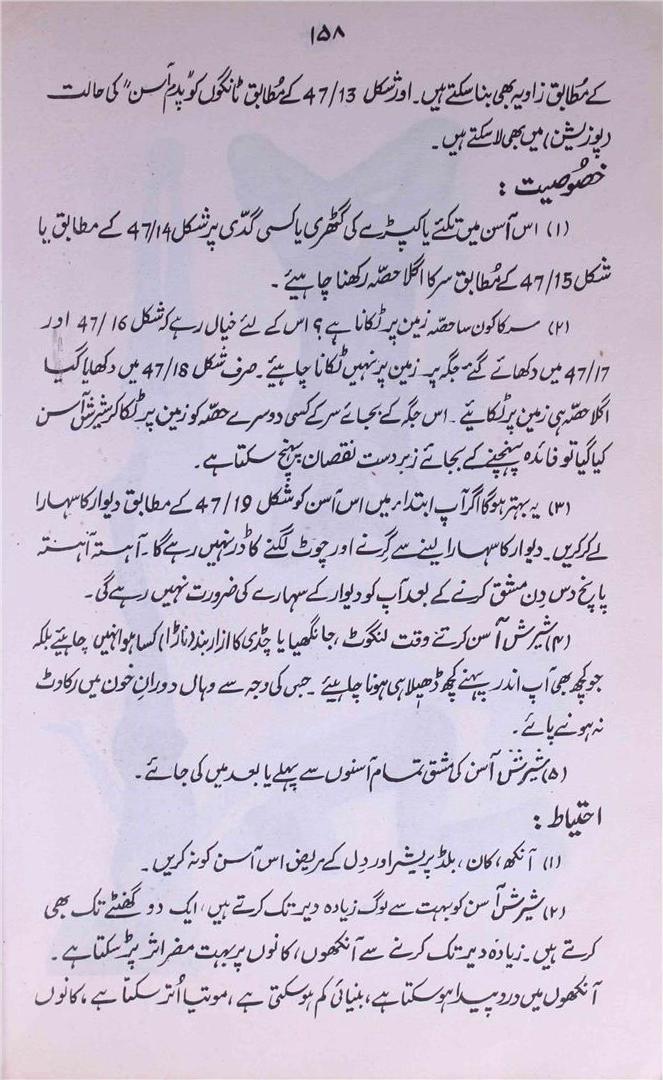 ۱۵۸
کے مُطابق زاویہ بھی بنا سکتے ہیں۔ اور شکل 47/13 کے مُطابق ٹانگوں کو ”پدم آسن“ کی حالت
(پوزیشن) میں بھی لا سکتے ہیں۔
خصُوصیت :
(۱) اس آسن میں تکئے یا کپڑے کی گٹھری یا کسی گدّی پر شکل 47/14 کے مطابق یا
شکل 47/15 کے مُطابق سر کا اگلا حصّہ رکھنا چاہیئے۔
(۲) سر کا کون سا حصّہ زمین پر ٹکانا ہے؟ اس کے لئے خیال رہے کہ شکل 47/16 اور
47/17 میں دکھائے گئے جگہ پر زمین پر نہیں ٹکانا چاہیئے۔ صرف شکل 47/18 میں دکھایا گیا
اگلا حصّہ ہی زمین پر ٹکایئے۔ اس جگہ کے بجائے سر کے کسی دوسرے حصّہ کو زمین پر ٹکا کر شیرش آسن
کیا گیا تو فائدہ پہنچنے کے بجائے زبردست نقصان پہنچ سکتا ہے۔
(۳) یہ بہتر ہوگا اگر آپ ابتداء میں اس آسن کو شکل 47/19 کے مطابق دیوار کا سہارا
لے کر کریں۔ دیوار کا سہارا لینے سے گرنے اور چوٹ لگنے کا ڈر نہیں رہے گا۔ آہستہ آہستہ
پانچ دس دِن مشق کرنے کے بعد آپ کو دیوار کے سہارے کی ضرورت نہیں رہے گی۔
(۴) شیرش آسن کرتے وقت لنگوٹ، جانگھیا یا چڈی کا ازاربند (ناڑا) کسا ہوا نہیں چاہیئے بلکہ
جو کچھ بھی آپ اندر پہنے کچھ ڈھیلا ہی ہونا چاہیئے جس کی وجہ سے وہاں دورانِ خون میں رکاوٹ
نہ ہونے پائے۔
(۵) شیرش آسن کی مشق تمام آسنوں سے پہلے یا بعد میں کی جائے۔
احتیاط :
(۱) آنکھ، کان، بلڈ پریشر اور دِل کے مریض اس آسن کو نہ کریں۔
(۲) شیرش آسن کو بہت سے لوگ زیادہ دیر تک کرتے ہیں، ایک دو گھنٹے تک بھی
کرتے ہیں۔ زیادہ دیر تک کرنے سے آنکھوں، کانوں پر بہت مضر اثر پڑ سکتا ہے۔
آنکھوں میں درد پیدا ہو سکتا ہے، بنیائی کم ہو سکتی ہے، موتیا اُتر سکتا ہے، کانوں